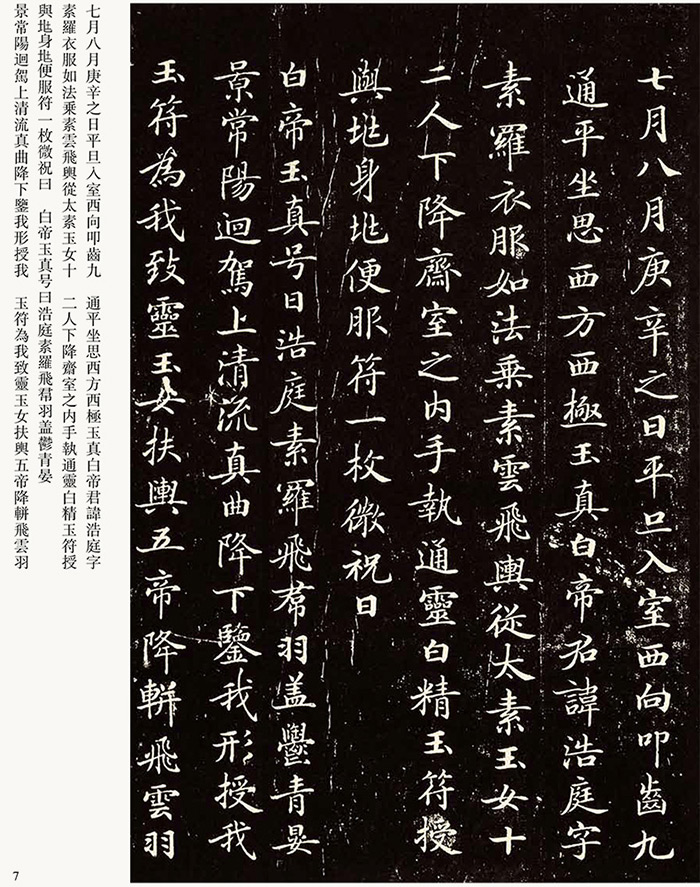 七月八月庚辛之日平旦入室西向叩齒九
通平坐思西方西極玉真白帝君諱浩庭字
素羅衣服如法乘素雲飛輿從太素玉女十
二人下降齋室之内手執通靈白精玉符授
與兆身兆便服符一枚微祝曰
白帝玉真号曰浩庭素羅飛帬羽盖鬱青晏
景常陽迴駕上清流真曲降下鑒我形授我
玉符為我致靈玉女扶輿五帝降軿飛雲羽
七月八月庚辛之日平旦入室西向叩齒九　通平坐思西方西極玉真白帝君諱浩庭字
素羅衣服如法乘素雲飛輿從太素玉女十　二人下降齋室之内手執通靈白精玉符授
與兆身兆便服符一枚微祝曰　白帝玉真号曰浩庭素羅飛帬羽盖鬱青晏
景常陽迴駕上清流真曲降下鑒我形授我　玉符為我致靈玉女扶輿五帝降軿飛雲羽
7